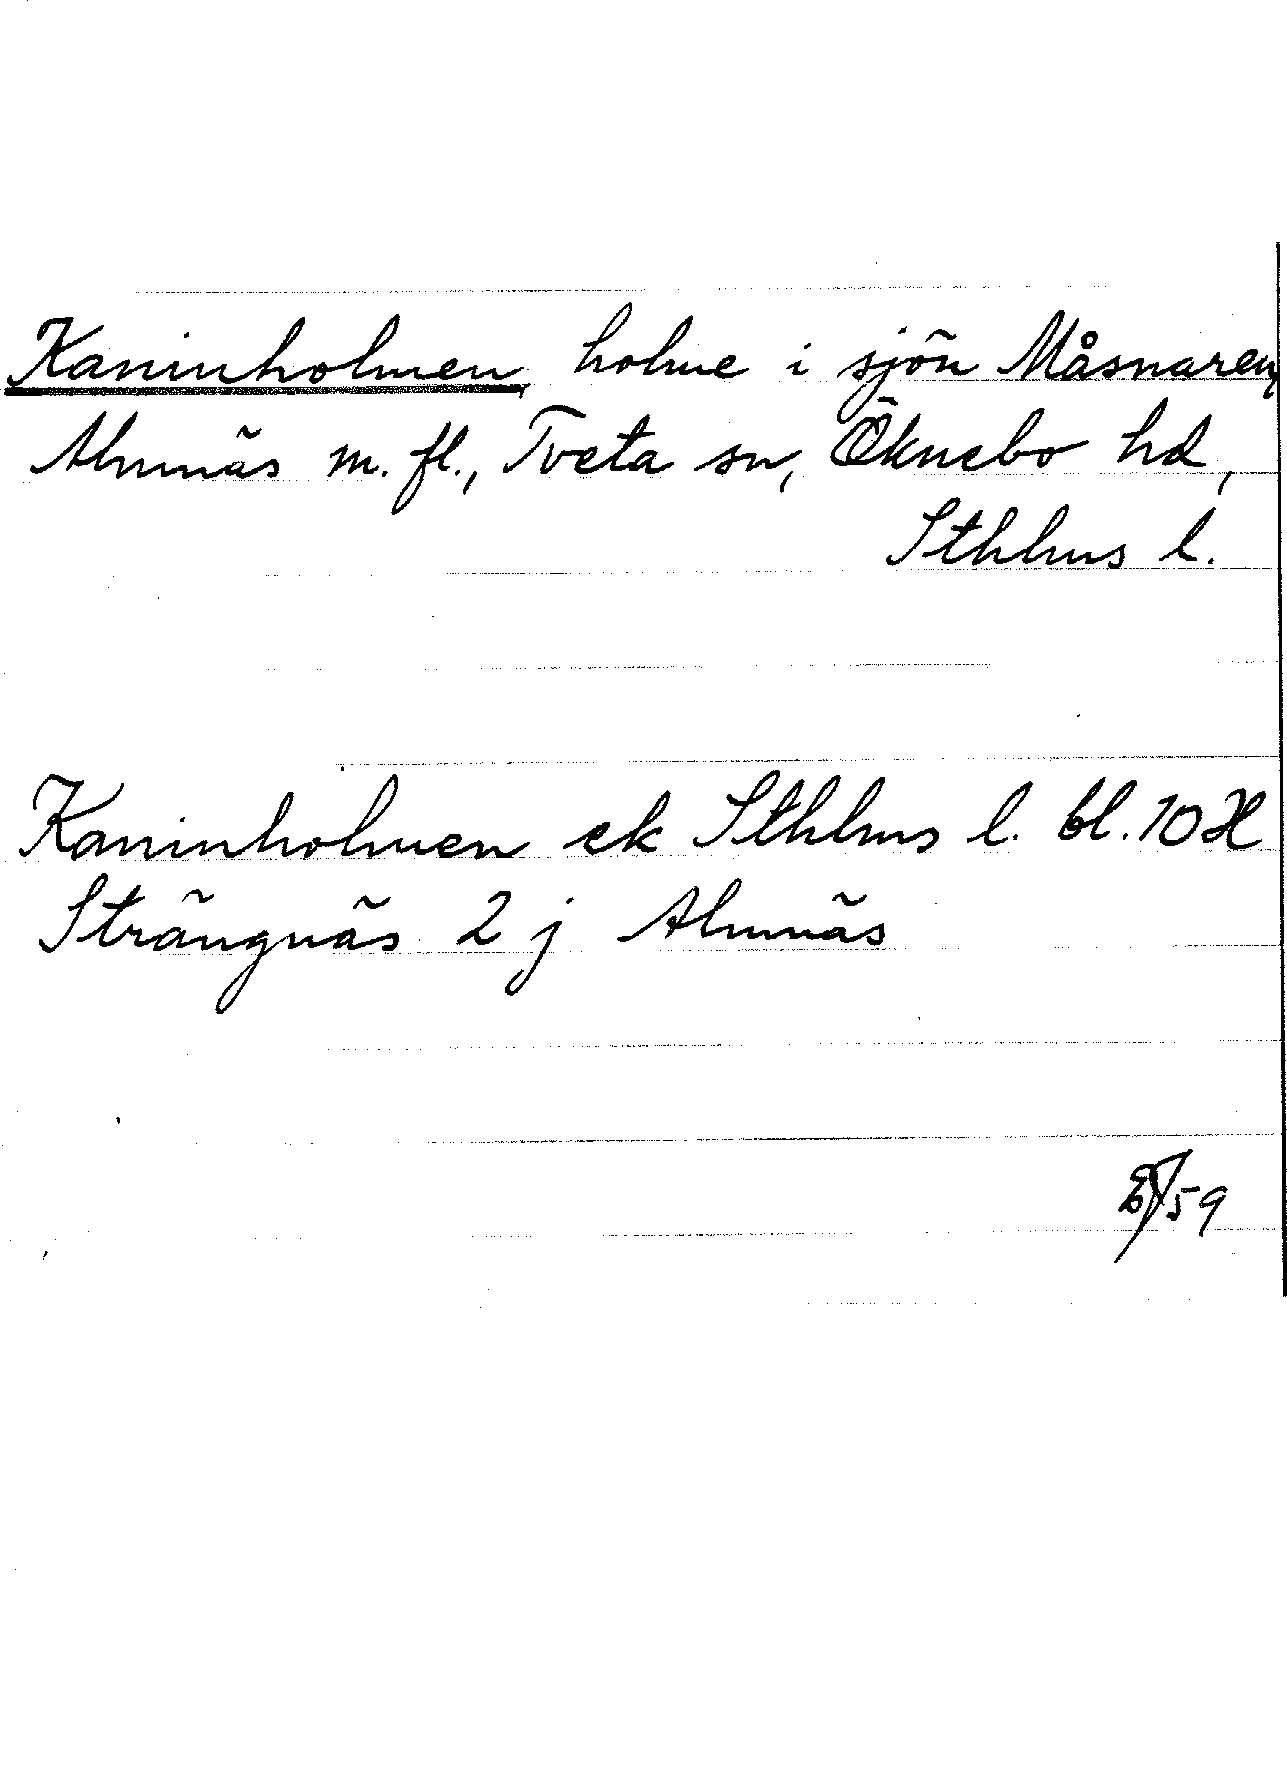 Kaninholmen, holme i sjön Måsnaren,
Almnäs m. fl., Tveta sn, Öknebo hd,
Sthlms l.
Kaninholmen ek Sthlms l. bl. 10 H
Strängnäs 2 j Almnäs
59